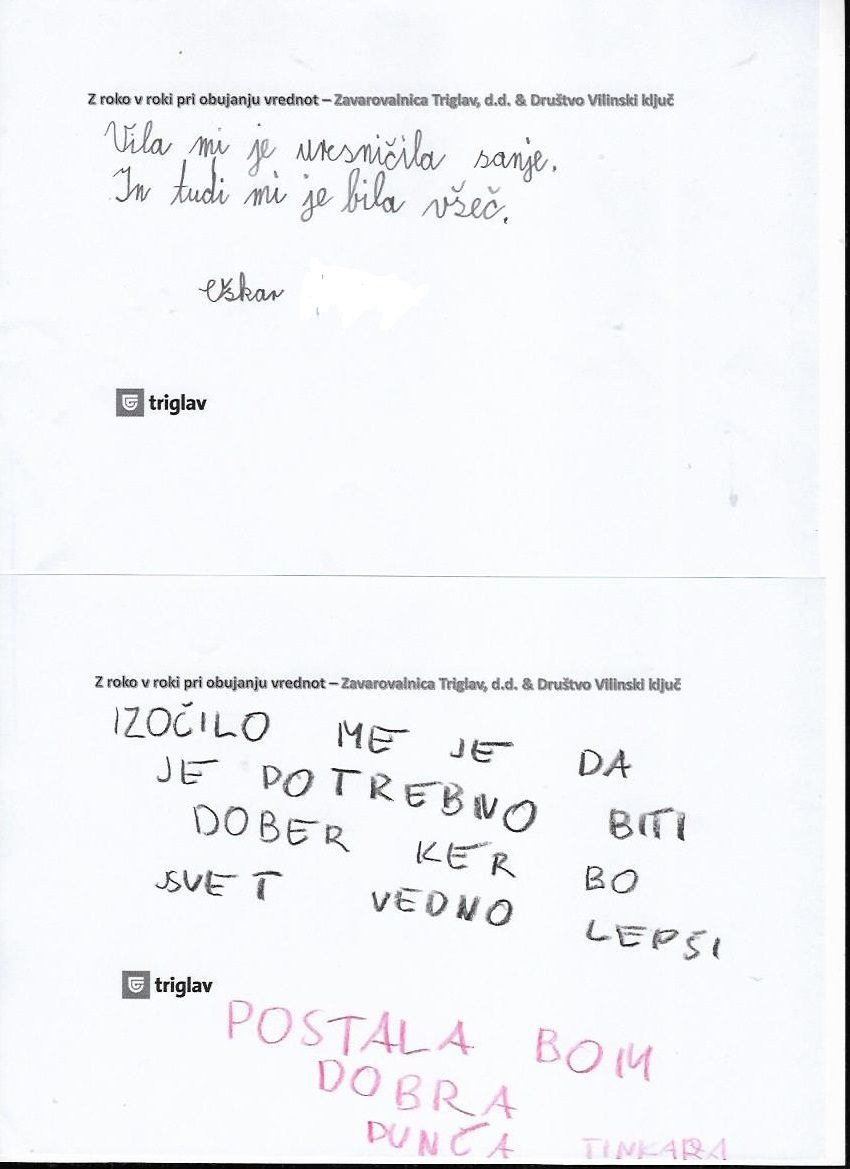 Z roko v roki pri obujanju vrednot – Zavarovalnica Triglav, d.d. & Društvo Vilinski ključ
Vila mi je uresničila sanje.
In tudi mi je bila všeč.
Oskar
triglav
Z roko v roki pri obujanju vrednot – Zavarovalnica Triglav, d.d. & Društvo Vilinski ključ
IZOČILO ME JE DA
JE POTREBNO BITI
DOBER KER BO
SVET VEDNO LEPSI
triglav
POSTALA BOM
DOBRA
PUNČA TINKARA